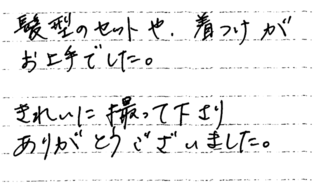 髪型のセットや、着つけが
お上手でした。
きれいに撮って下さり
ありがとうございました。